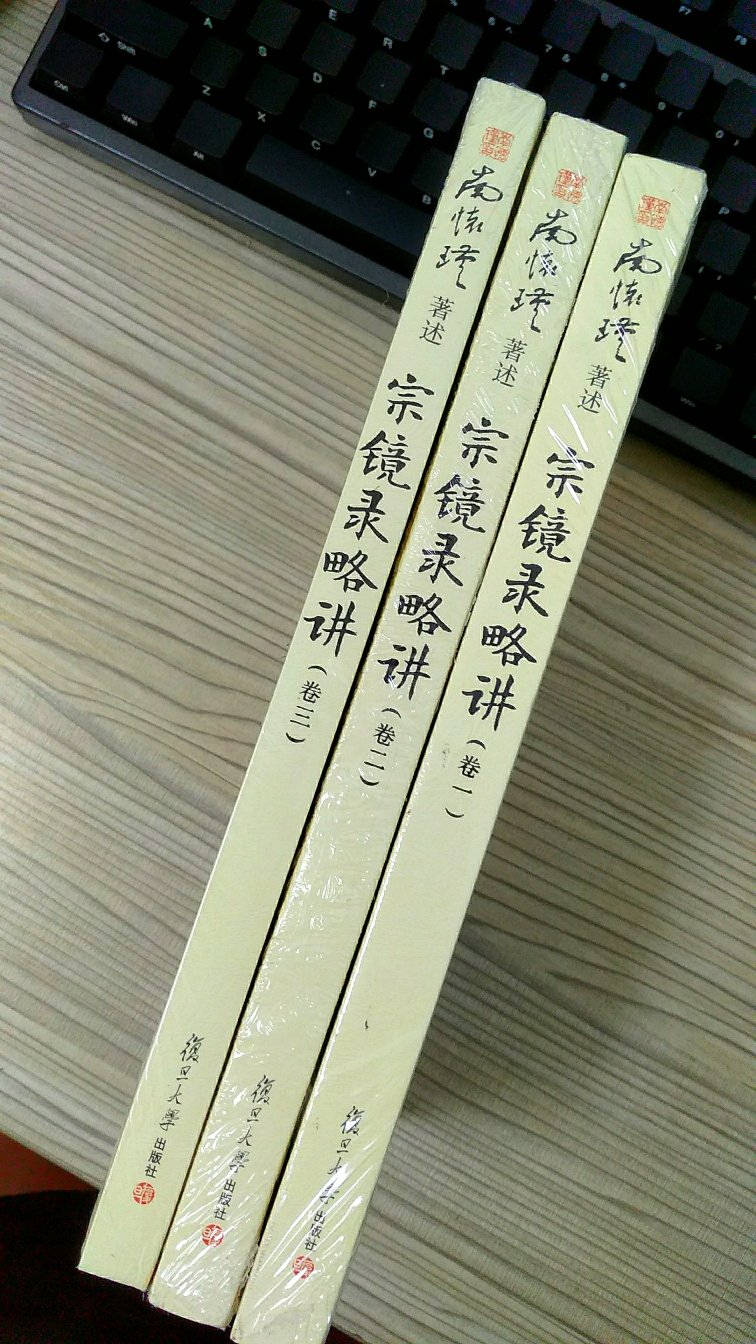 南怀瑾 著述
宗镜录略讲(卷三)
復旦大學出版社
南怀瑾 著述
宗镜录略讲(卷二)
復旦大學出版社
南怀瑾 著述
宗镜录略讲(卷一)
復旦大學出版社
Shift
A
S
D
F
G
Z
X
C
V
B
Ctrl
Win
Alt
F7